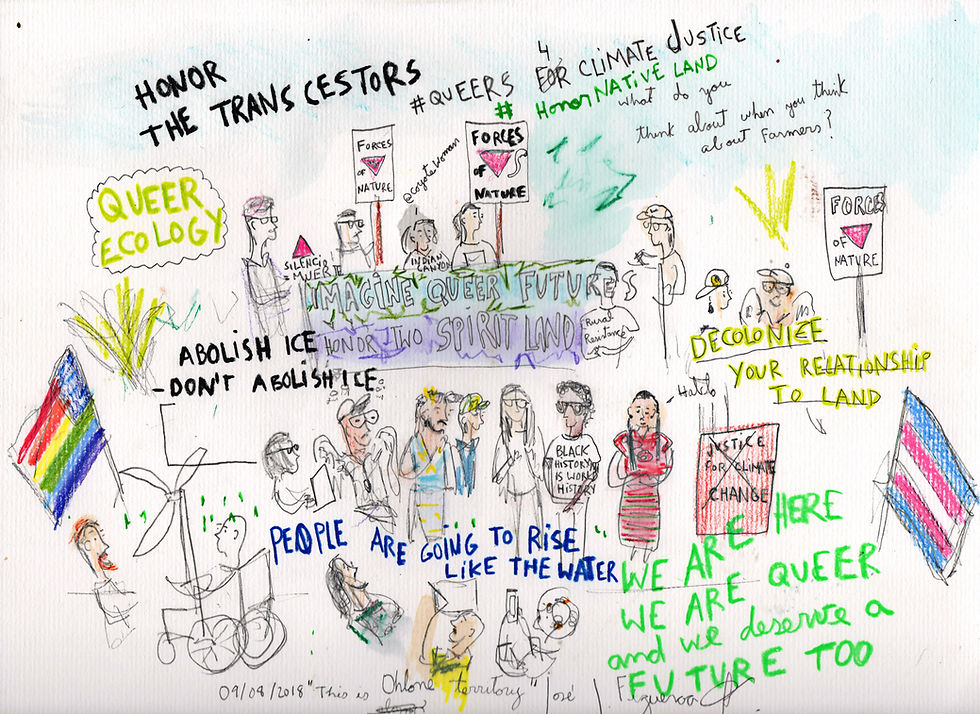 HONOR
THE TRANSCESTORS
#QUEERS
4
FOR CLIMATE JUSTICE
# Honor NATIVE LAND
what do you
think about when you think
about farmers?
QUEER
ECOLOGY
FORCES
OF
NATURE
@CoyoteWoman
FORCES
OF
NATURE
FORCES
OF
NATURE
SILENCIO
MUERTE
INDIAN
CANYON
IMAGINE QUEER FUTURES
HONOR TWO SPIRIT LAND
Rural
Resistance
DECOLONIZE
YOUR RELATIONSHIP
TO LAND
ABOLISH ICE
-DON'T ABOLISH ICE
BLACK
HISTORY
IS WORLD
HISTORY
JUSTICE
FOR CLIMATE
CHANGE
PEOPLE ARE GOING TO RISE
LIKE THE WATER
WE ARE HERE
WE ARE QUEER
and we deserve a
FUTURE TOO
09/08/2018 "This is Ohlone territory" José J. Figueroa